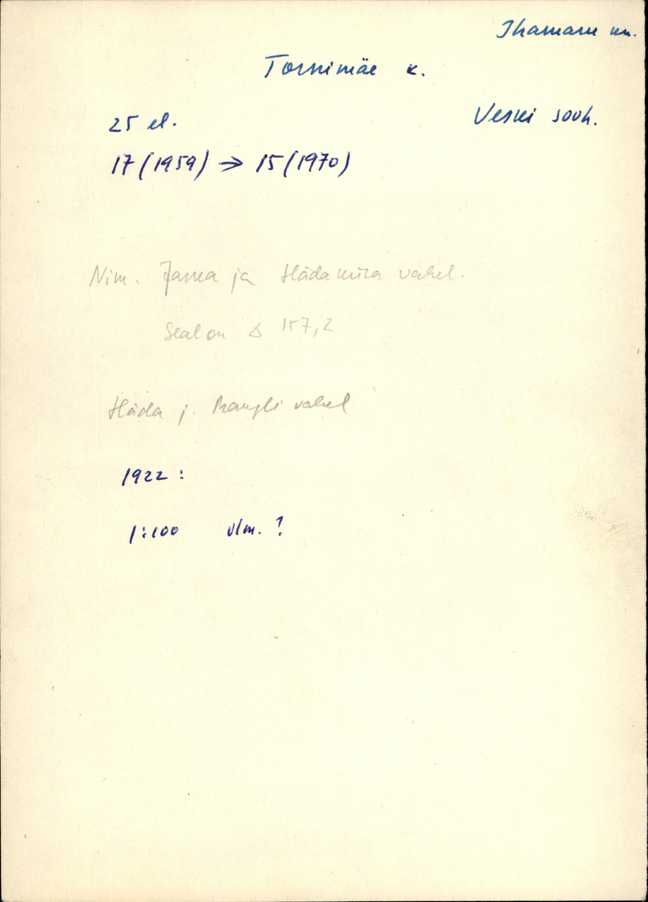 Ihamaru kn.
Tornimäe k.
25 el. Veski sovh.
17 (1959) → 15 (1970)
Nim. Jaska ja Hädaküla vahel.
Seal on △ 157,2
Häda j. Prangli vahel
1922 :
1:100 vlm. ?